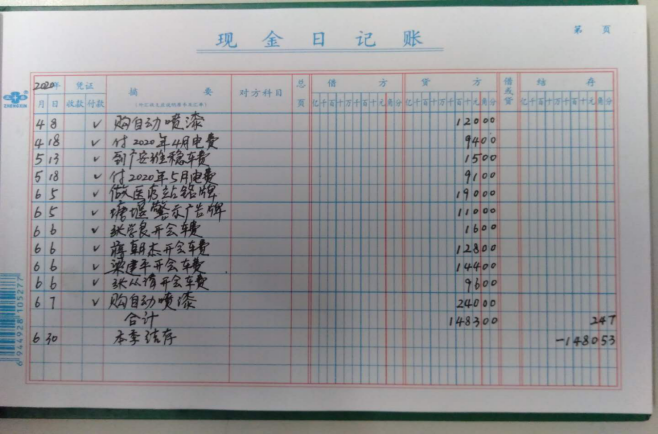 现金日记账
第 页
2020年 凭证 摘要 对方科目 总页 借方 贷方 借或贷 结存
月 日 收款 付款 亿千百十万千百十元角分 亿千百十万千百十元角分 亿千百十万千百十元角分
4 8 ✓ 购自动喷漆 12000
4 18 ✓ 付2020年4月电费 9400
5 13 ✓ 到广安维稳车费 1500
5 18 ✓ 付2020年5月电费 9100
6 5 ✓ 做医疗站铭牌 19000
6 5 ✓ 塘堰警示广告牌 11000
6 6 ✓ 张学良开会车费 1600
6 6 ✓ 蒋朝杰开会车费 12800
6 6 ✓ 梁建平开会车费 14400
6 6 ✓ 张从清开会车费 9600
6 7 ✓ 购自动喷漆 24000
合计 148300 247
6 30 本季结存 -148053
6944928105277